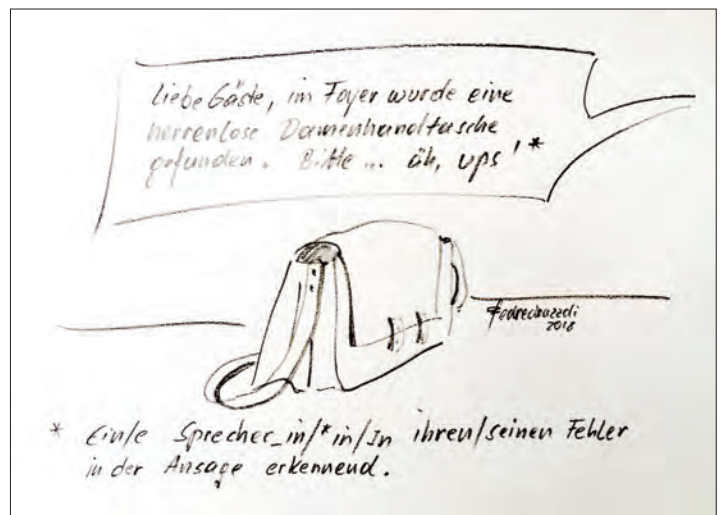 Liebe Gäste, im Foyer wurde eine
herrenlose Damenhandtasche
gefunden. Bitte ... äh, ups!*
2018
* Ein/e Sprecher_in/*in/In ihren/seinen Fehler
in der Ansage erkennend.